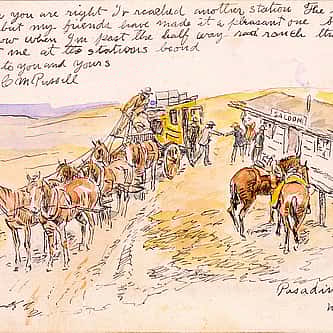 you are right I'v reached another station The
but my friends have made it a pleasant one
ow when I'm past the half way road ranch
me at the stations beond
to you and yours
C M Russell
SALOON
Pasadin